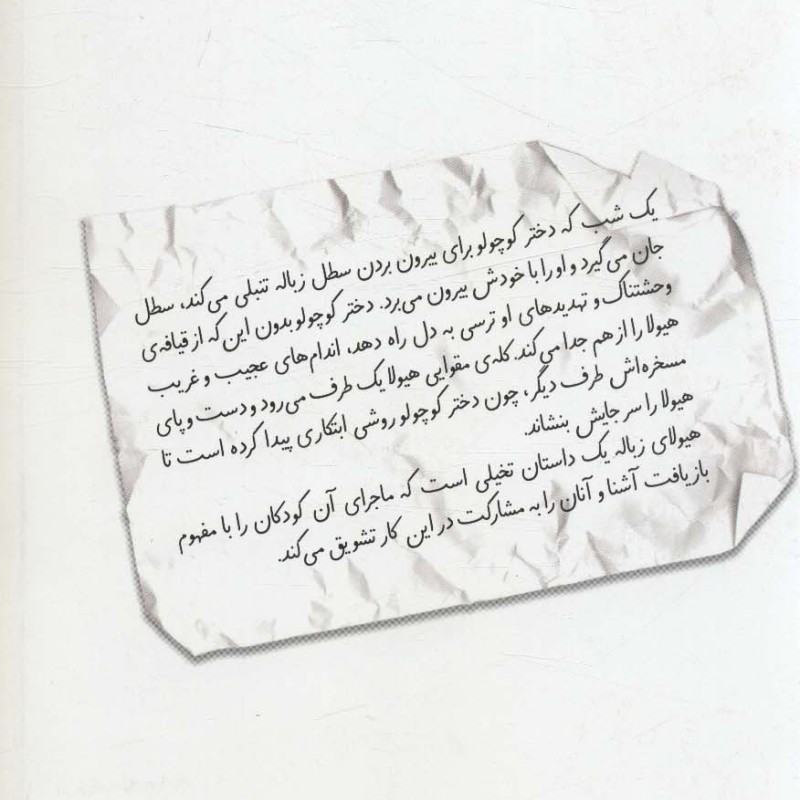 یک شب که دختر کوچولو برای بیرون بردن سطل زباله تنبلی می‌کند، سطل
جان می‌گیرد و او را با خودش بیرون می‌برد. دختر کوچولو بدون این که از قیافه‌ی
وحشتناک و تهدیدهای او ترسی به دل راه دهد، اندام‌های عجیب و غریب
هیولا را از هم جدا می‌کند. کله‌ی مقوایی هیولا یک طرف می‌رود و دست و پای
مسخره‌اش طرف دیگر، چون دختر کوچولو روشی ابتکاری پیدا کرده است تا
هیولا را سر جایش بنشاند.
هیولای زباله یک داستان تخیلی است که ماجرای آن کودکان را با مفهوم
بازیافت آشنا و آنان را به مشارکت در این کار تشویق می‌کند.